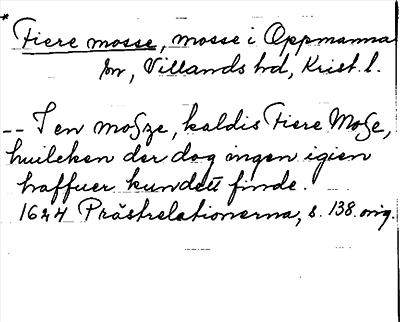 * Fiere mosse, mosse i Oppmanna
sn, Villands hd, Krist. l.
-- I en moßze, kaldis Fiere Moße,
huileken der dog ingen igien
haffuer kundett finde.
1624 Prästrelationerna, s. 138. orig.